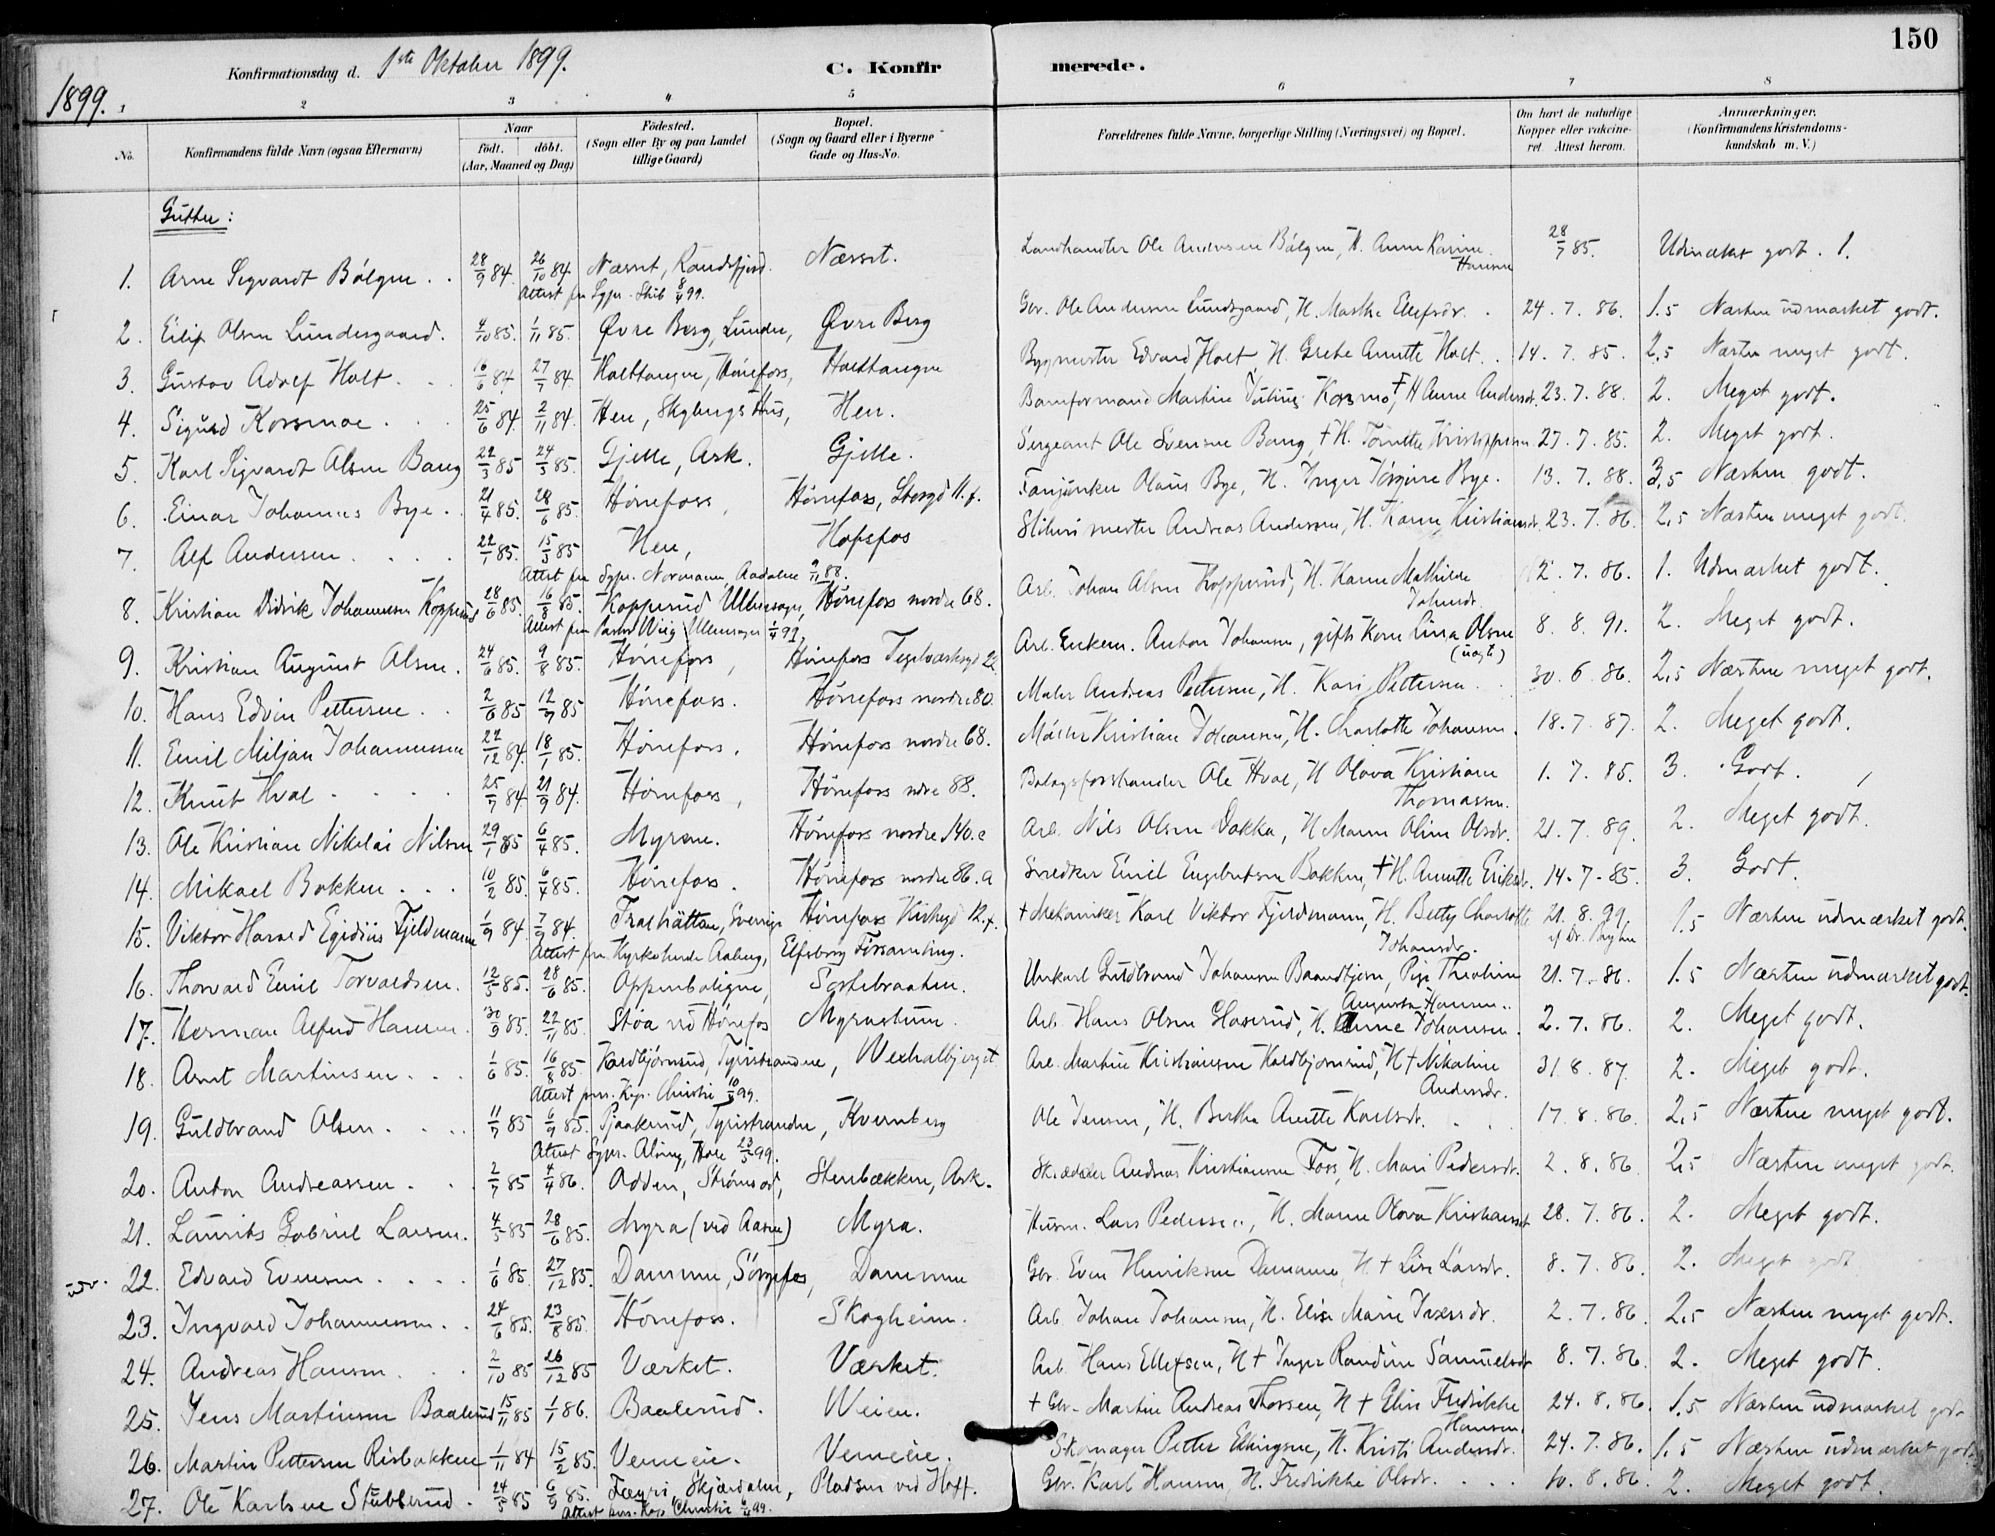 150
1899.
Konfirmationsdag d. 1ste Oktober 1899.
C. Konfirmerede.
1 2 3 4 5 6 7 8
No.
Konfirmandens fulde Navn (ogsaa Efternavn)
Naar
født. døbt.
(Aar, Maaned og Dag)
Fødested.
(Sogn eller By og paa Landet
tillige Gaard)
Bopæl.
(Sogn og Gaard eller i Byerne
Gade og Hus-No.
Forældrenes fulde Navne, borgerlige Stilling (Næringsvei) og Bopæl.
Om havt de naturlige
Kopper eller vakcine-
ret. Attest herom.
Anmærkninger.
(Konfirmandens Kristendoms-
kundskab m. V.)
Gutter:
1. Arne Sigvardt Bölgen . . 28/9 84. 26/10 84. Næsset, Randsfjord. Næsset. Landhandler Ole Andersen Bölgen, H. Anne Karine Hansen 28/7 85. Udmærket godt. 1.
Attest fra Sgpr. 8/4 99.
2. Eilif Olsen Lundesgaard. 4/10 85. 1/11 85. Øvre Berg, Lunder, Øvre Berg Gbr. Ole Andersen Lundesgaard, H. Marthe Elefsdr. . 24. 7. 86. 1.5 Næsten udmærket godt.
3. Gustav Adolf Holt. . . 16/6 84. 27/7 84. Holttangen, Hönefoss, Holttangen Bygmester Edvard Holt, H. Grethe Anette Holt. . 14. 7. 85. 2.5 Næsten meget godt.
4. Sigurd Korsmoe . . . 25/6 84. 2/11 84. Hen, Skybergs Hus, Hen. Bomformand Martin Julius Korsmo, + H Anne Andersdr. 23. 7. 88. 2. Meget godt.
5. Karl Sigvardt Olsen Bang 22/3 85 24/5 85. Gjelle, Ask. Gjelle. Sergeant Ole Svensen Bang, + H. 27. 7. 85. 2. Meget godt.
6. Einar Johannes Bye . . 21/4 85. 28/6 85. Hönefoss, Hönefoss, Storgd 11. f. Fanjunker Olaus Bye, H. Inger Jörgine Bye. 13. 7. 88. 3.5 Næsten godt.
7. Alf Andersen . . . . 22/1 85. 15/3 85 Hen, Hofsfos Sliberimester Andreas Andersen, H. Karen Kristiansdr. 23. 7. 86. 2.5 Næsten meget godt.
Attest fra Sgpr. Normann, Aadalen 9/11 88.
8. Kristian Didrik Johannesen Kopperud 28/6 85. 16/8 85. Kopperud Ullensager, Hönefoss nordre 68. Arb. Johan Olsen Kopperud, H. Karen Mathilde 2. 7. 86. 1. Udmærket godt.
Attest fra Pastor Wiig Ullensager 1/4 99.
9. Kristian August Olsen . 24/6 85. 9/8 85. Hönefoss, Hönefoss Teglværksgd 22 Arb. Enkem. Anton Johansen, gifte Kone Lina Olsen (uægte) 8. 8. 91. 2. Meget godt.
10. Hans Edvin Pettersen . . 2/6 85 12/7 85 Hönefoss. Hönefoss nordre 80. Maler Andreas Pettersen, H. Kari Pettersen . . 30. 6. 86. 2.5 Næsten meget godt.
11. Emil Miljan Johannessen 22/12 84. 18/1 85. Hönefoss. Hönefoss nordre 68. Kristian Johansen, H. Charlotte Johansen. 18. 7. 87. 2. Meget godt.
12. Knut Hval . . . . 25/7 84 21/9 84. Hönefoss, Hönefoss ndre 88. Bolagsforstander Ole Hval, H Olova Kristiane Thomassen. 1. 7. 85. 3. Godt.
13. Ole Kristian Nikolai Nilsen 29/1 85 6/4 85. Myrene. Hönefoss nordre 140. c Arb. Nils Olsen Dokka, H Maren Oline Olsdr. 21. 7. 89. 2. Meget godt.
14. Mikael Bakken . . . 10/2 85. 6/4 85. Hönefoss. Hönefoss nordre 86. a Snedker Emil Engebretsen Bakken, + H. Anette Eriksdr. 14. 7. 85. 3. Godt.
15. Viktor Harald Egidius Fjeldmann 1/9 84. 7/9 84. Trolhättan, Sverrige Hönefoss Kirkegd 12. f. + Mekaniker Karl Viktor Fjeldmann, H. Betty Charlotte Johansdr. 21. 8. 99. 1.5 Næsten udmærket godt.
Attest fra Kyrkoherde Aaberg, Elfsborg Församling.
16. Thorvald Emil Torvaldsen. 12/5 85. 28/6 85. Oppenboligen, Sortebraaten. Ungkarl Guldbrand Johansen Baardtjern, Pige Theoline Augusta Hansen. 21. 7. 86. 1.5 Næsten udmærket godt.
17. Herman Alfred Hansen. 30/9 85. 22/11 85. Støa ved Hönefos Myrastuen. Arb. Hans Olsen Haserud, H. Anne Johansen. 2. 7. 86. 2. Meget godt.
18. Arnt Martinsen . . . 1/6 85. 16/8 85. Koldbjörnsrud, Tyristranden, Arb. Martin Kristiansen Koldbjörnsrud, H + Nikoline Andersdr. 31. 8. 87. 2. Meget godt.
Attest pers. Kap. Christie 10/3 99.
19. Guldbrand Olsen . . . . 11/7 85 6/9 85. Pjaakerud, Tyristranden, Kvernberg Ole Jensen, H. Berthe Anette Karlsdr. . . . 17. 8. 86. 2.5 Næsten meget godt.
Attest Sgpr. Hole 23/5 99.
20. Anton Andreassen . . . 2/7 85 4/4 86. Odden, Strømsod, Stenbækken, Ask. Skrædder Andreas Kristiansen Foss, H. Mari Pedersdr. 2. 8. 86. 2.5 Næsten meget godt.
21. Laurits Gabriel Larsen. 4/5 85 28/6 85. Myra (ved Aasen) Myra. Husm. Lars Pedersen, H. Maren Olova Kristiansdr 28. 7. 86. 2. Meget godt.
22. Edvard Evensen . . . . 1/6 85. 27/12 85. Dammen, Sörgefos, Dammen Gbr. Even Henriksen Dammen H + Lise Larsdr. 8. 7. 86. 2. Meget godt
23. Ingvald Johannessen. . 24/6 85. 23/8 85. Hönefoss. Skogheim. Arb. Johan Johansen, H. Elise Marie Iversdr. 2. 7. 86. 2.5 Næsten meget godt.
24. Andreas Hansen . . . 2/10 85 26/12 85 Værket. Værket. Arb. Hans Ellefsen, H + Inger Randine Samuelsdr 8. 7. 86. 2. Meget godt.
25. Jens Martinsen Baalerud 15/11 85 1/1 86. Baalerud. Weien. + Gbr. Martin Andreas Thorsen, H + Elise Fredrikke Hansen. 24. 8. 86. 1.5 Næsten udmærket godt
26. Martin Pettersen Risbakken 1/11 84 15/2 85. Vemeie. Vemeie. Skomager Petter Ellingsen, H. Kristi Andersdr. 24. 7. 86. 1.5 Næsten udmærket godt
27. Ole Karlsen Stubberud . 24/5 85 6/9 85. Fægri, Skjærdalen, Pladsen ved Hoff. Gbr. Karl Hansen, H. Fredrikke Olsdr. . . 10. 8. 86. 2. Meget godt.
Attest pers. Kap. Christie 6/4 99.